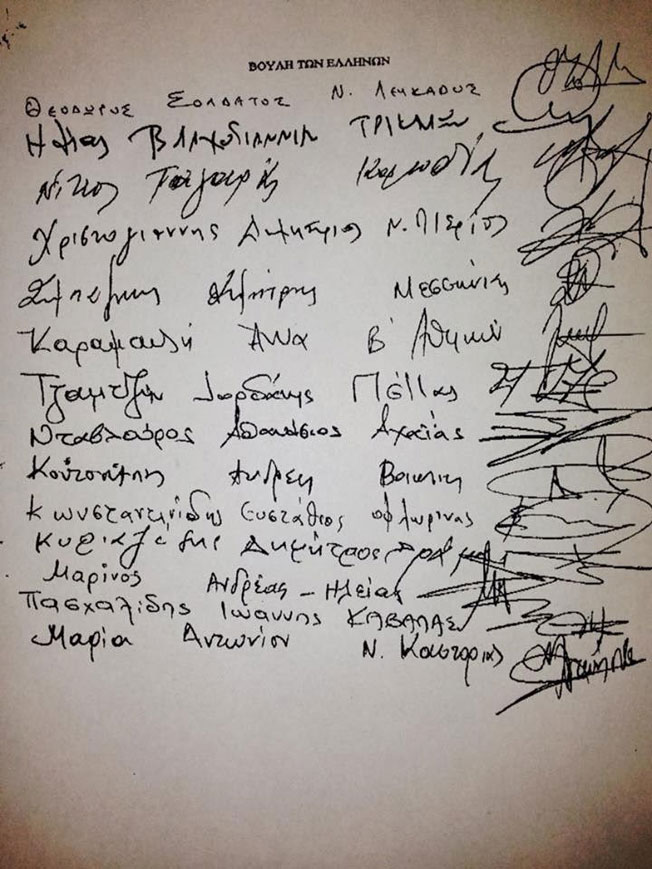 ΒΟΥΛΗ ΤΩΝ ΕΛΛΗΝΩΝ
ΘΕΟΔΩΡΟΣ ΣΟΛΔΑΤΟΣ Ν. ΛΕΥΚΑΔΟΣ
Ηλίας ΒΛΑΧΟΓΙΑΝΝΗ ΤΡΙΚΑΛΩΝ
Νίκος Ταγαράς Κορινθίας
Χριστογιάννης Δημήτριος Ν. ΠΙΕΡΙΑΣ
Δημήτρης Μεσσηνίας
Καραμανλή Άννα Β' Αθηνών
Τζαμτζής Ιορδάνης Πέλλας
Νταβλούρος Αθανάσιος Αχαΐας
Ανδρέας
Κωνσταντινίδης Ευστάθιος Φλώρινας
Κυριαζίδης Δημήτριος Δράμα
Μαρίνος Ανδρέας - Ηλείας
Πασχαλίδης Ιωάννης ΚΑΒΑΛΑΣ
Μαρία Αντωνίου Ν. Καστοριάς